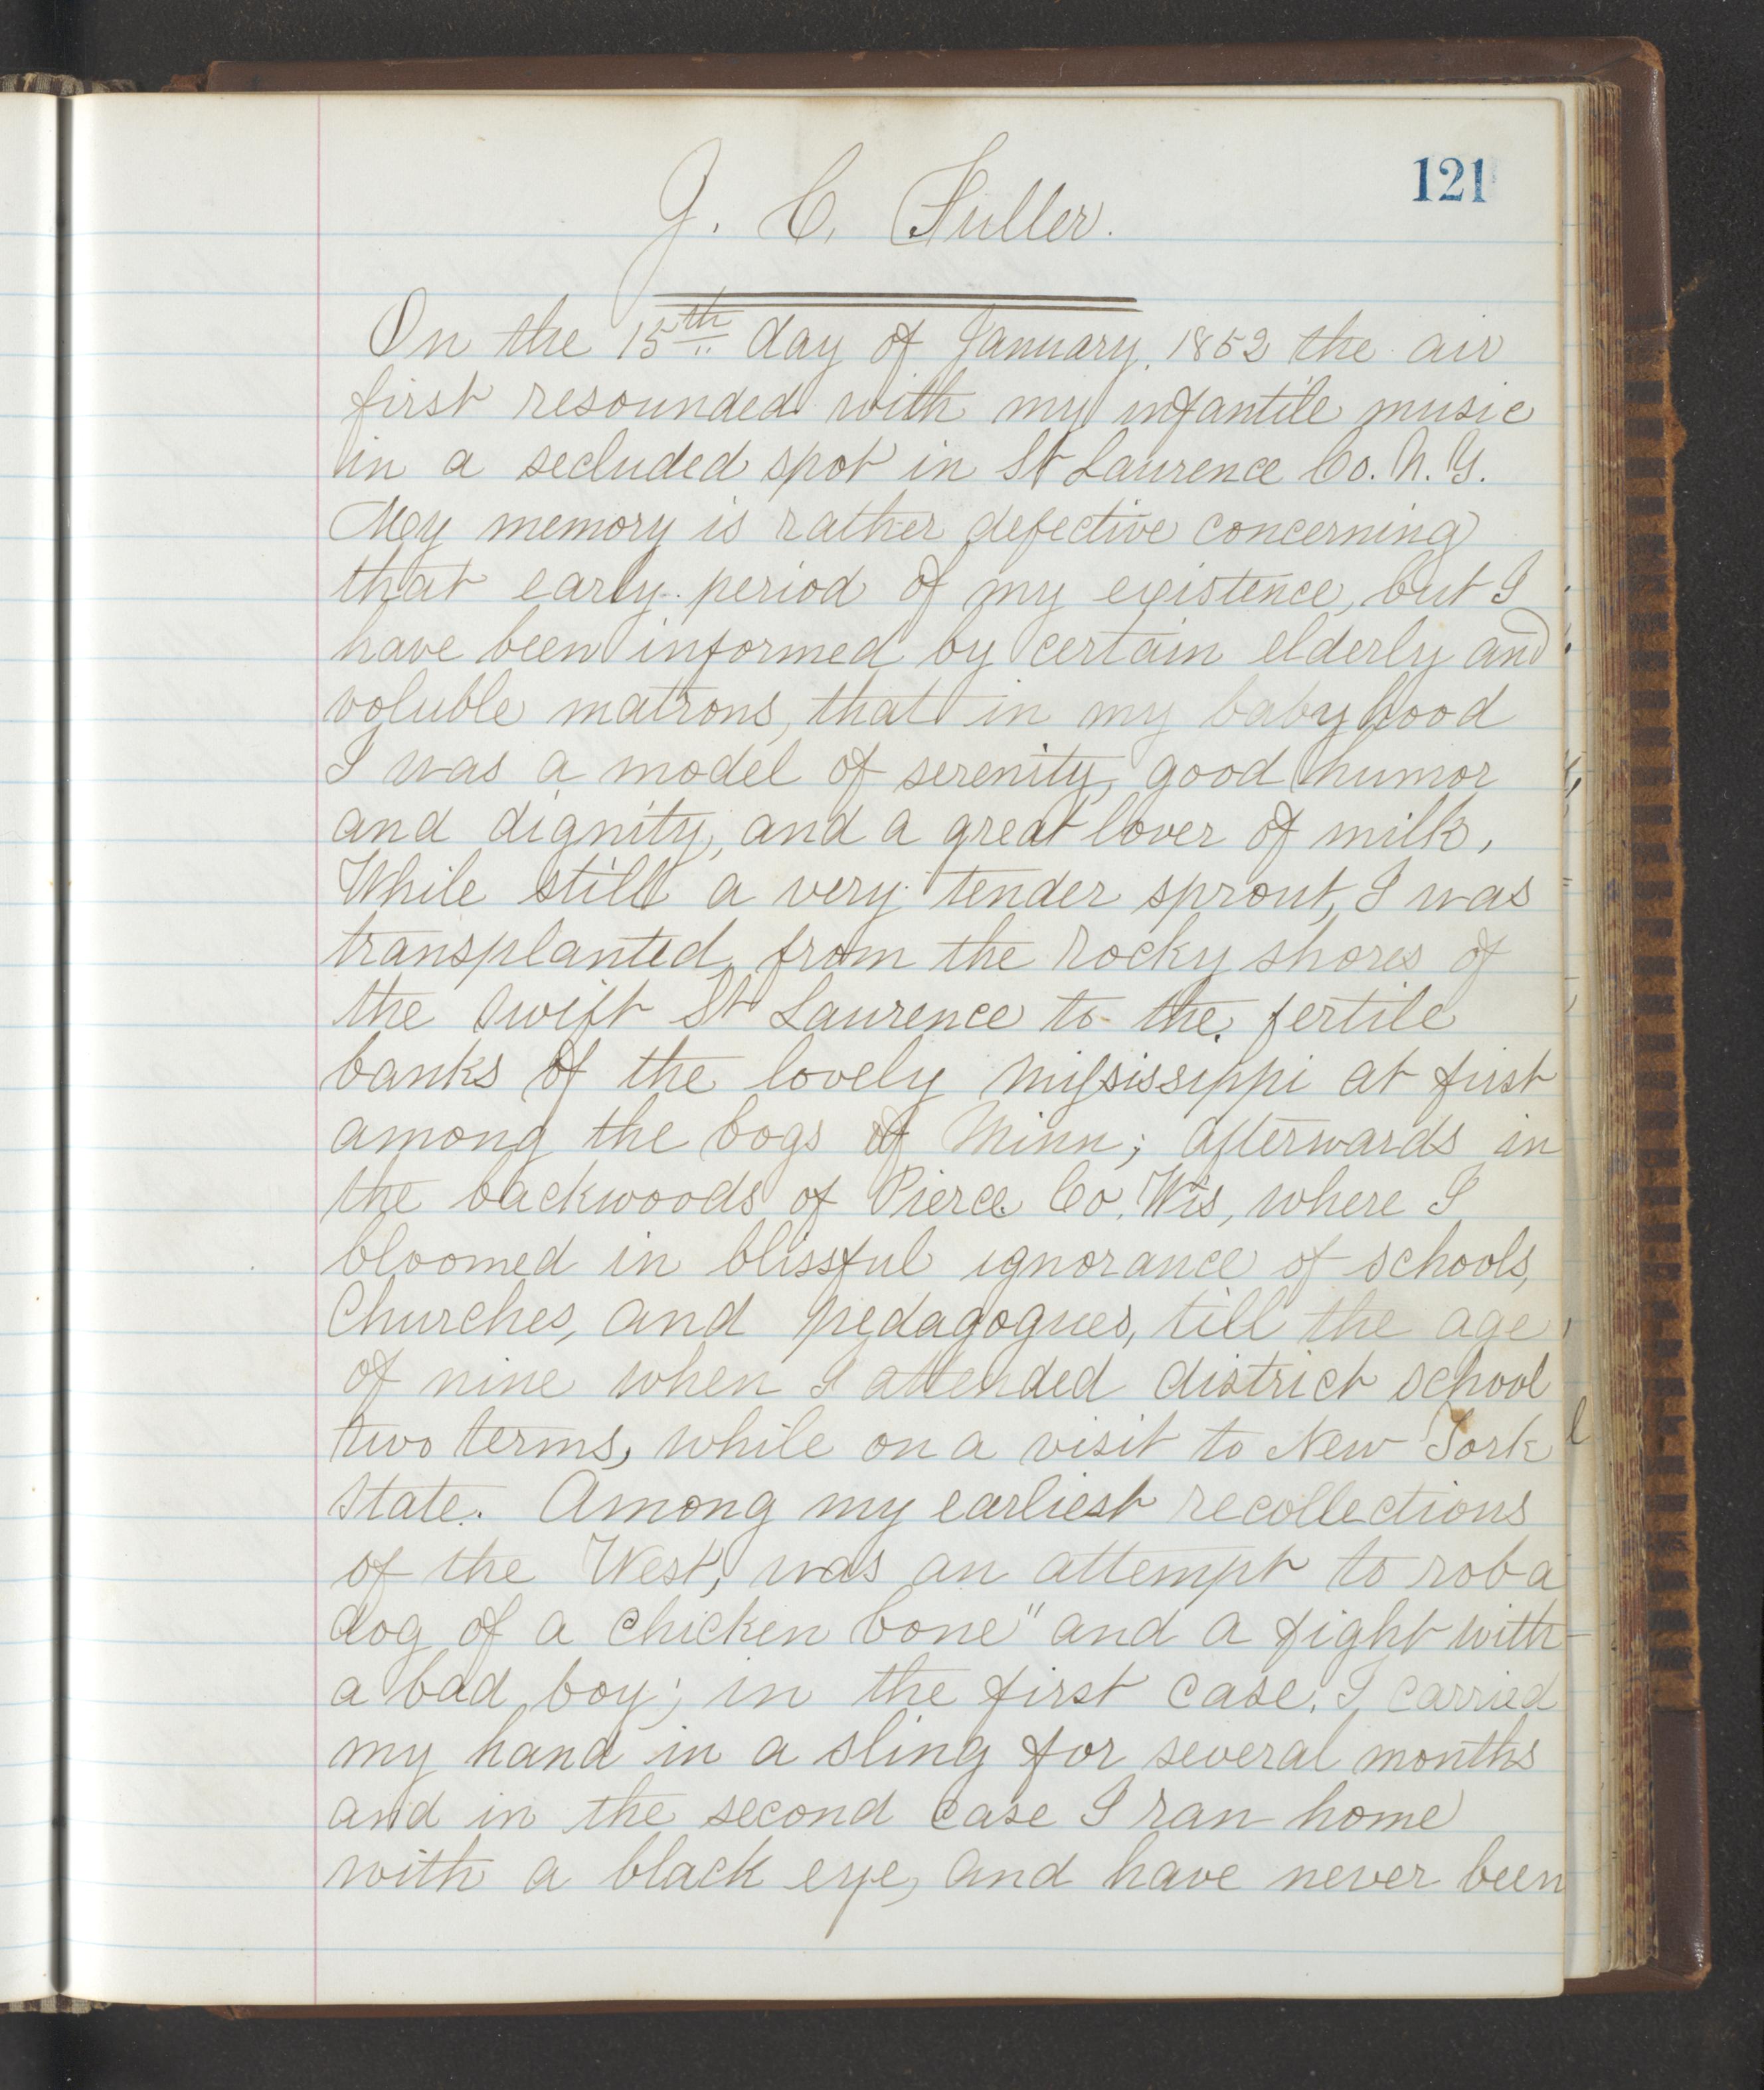 121
J. C. Fuller.
On the 15th day of January, 1852 the air
first resounded with my infantile music
in a secluded spot in St Laurence Co. N. Y.
My memory is rather defective concerning
that early period of my existence, but I
have been informed by certain elderly and
voluble matrons, that in my babyhood
I was a model of serenity, good humor
and dignity, and a great lover of milk.
While still a very tender sprout, I was
transplanted, from the rocky shores of
the swift St Laurence to the fertile
banks of the lovely Mississippi at first
among the bogs of Minn; afterwards in
the backwoods of Pierce Co. Wis, where I
bloomed in blissful ignorance of schools,
Churches, and pedagogues, till the age
of nine when I attended district school
two terms, while on a visit to New York
State. Among my earliest recollections
of the West, was an attempt to rob a
dog of a chicken bone" and a fight with
a bad boy; in the first case, I carried
my hand in a sling for several months
and in the second case I ran home
with a black eye, and have never been